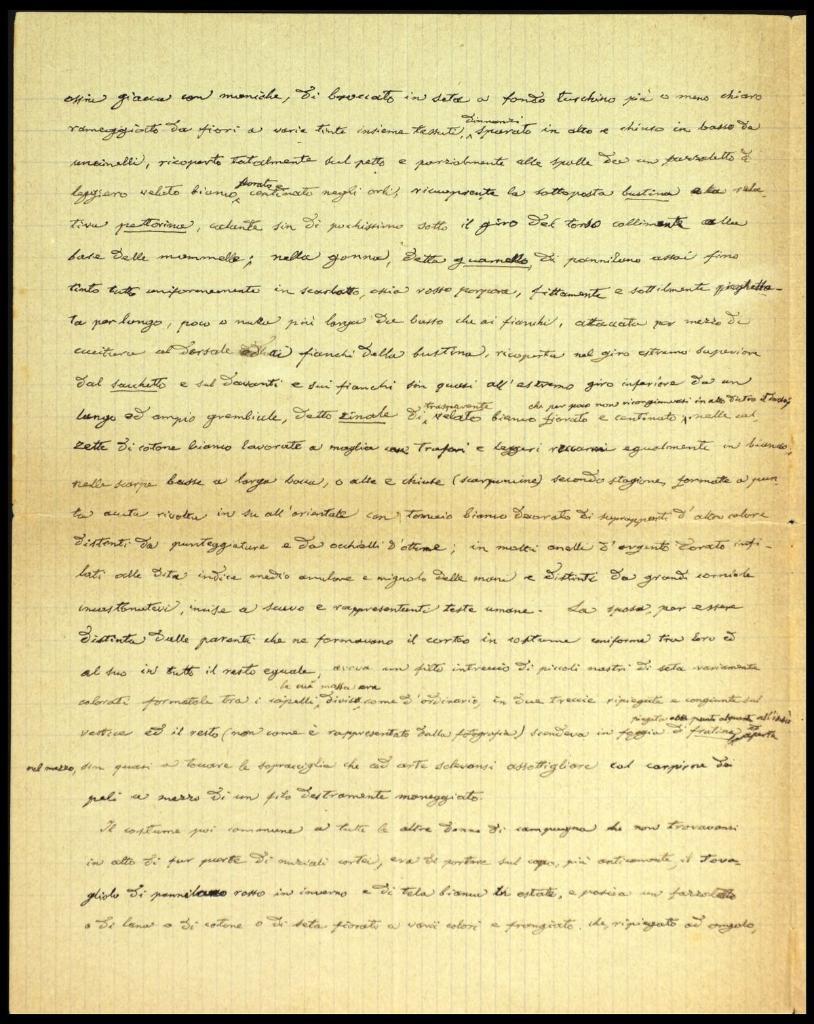 ossia giacca con maniche, di broccato in seta a fondo turchino più o meno chiaro
rameggiato da fiori a varie tinte insieme tessuti, dinnanzi sparato in alto e chiuso in basso da
uncinelli, ricoperto totalmente sul petto e parzialmente alle spalle da un fazzoletto di
leggiero velato bianco fiorato e centinato negli orli, ricoprente la sottoposta bustina e la rela-
tiva pettorina, calante sin di pochissimo sotto il giro del torso collimente alla
base delle mammelle; nella gonna, detta guarnello, di pannilano assai fino
tinto tutto uniformemente in scarlatto, ossia rosso porpora, fittamente e sottilmente pieghetta-
ta per lungo, poco o nulla più larga da basso che ai fianchi, attaccata per mezzo di
cucitura al dorsale ed ai fianchi della bustina, ricoperta nel giro estremo superiore
dal sacchetto e sul davanti e sui fianchi sin quasi all'estremo giro inferiore da un
lungo ed ampio grembiule, detto zinale di trasparente velato bianco fiorato e centinato che per poco non ricongiunvasi in alto dietro il dorso; nelle cal-
zette di cotone bianco lavorate a maglia con trafori e leggeri ricami egualmente in bianco;
nelle scarpe basse a larga bocca, o alte e chiuse (scarponcine) secondo stagione, formate a pun-
ta acuta rivolta in su all'orientale con tomaio bianco decorato di soprapponti d'altro colore
distinti da punteggiature e da occhielli d'ottone; in molti anelli d'argento dorato infi-
lati alle dita indice medio anulare e mignolo delle mani e distinti da grandi corniole
incastonatevi, incise a scavo e rappresentanti teste umane. La sposa, per essere
distinta dalle parenti che ne formavano il corteo in costume uniforme tra loro ed
al suo in tutto il resto eguale, aveva un fitto intreccio di piccoli nastri di seta variamente
colorati formatole tra i capelli, la cui massa era divisa, come d'ordinario, in due treccie ripiegate e congiunte sul
vertice ed il resto (non come è rappresentato dalla fotografia) scendeva in foggia di fratina aperta
nel mezzo, sin quasi a toccare le sopracciglia che ad arte solevansi assottigliare col carpirne dei
peli a mezzo di un filo destramente maneggiato.
Il costume poi comune a tutte le altre donne di campagna che non trovavansi
in atto di far parte di nuziali cortei, era di portare sul capo, più anticamente, il tova-
gliolo di pannilano rosso in inverno e di tela bianca in estate, e poscia un fazzoletto
o di lana o di cotone o di seta fiorato a varii colori e frangiato, che, ripiegato ad angolo,